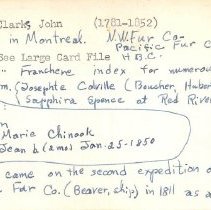 Clark, John (1781-1852)
in Montreal. N.W. Fur Co-
Pacific Fur C
See Large Card File H.B.C.
" Franchere index for numerou
m. Josephte Colville (Boucher, Hubert
Sapphira Spence at Red River
Marie Chinook
Jean b. (a mo) Jan-25-1850
came on the second expedition o
Fur Co. (Beaver, ship) in 1811 as a